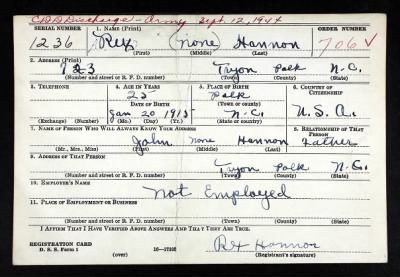 CDD Discharge - Army Sept. 12, 1944
SERIAL NUMBER 1. NAME (Print) ORDER NUMBER
1236 Rex (none) Hannon 706
(First) (Middle) (Last)
2. ADDRESS (Print)
Tryon Polk N-C.
(Number and street or R. F. D. number) (Town) (County) (State)
3. TELEPHONE 4. AGE IN YEARS 5. PLACE OF BIRTH 6. COUNTRY OF CITIZENSHIP
25 Polk
DATE OF BIRTH (Town or county)
Jan 20 1915 N-C. U.S.A.
(Exchange) (Number) (Mo.) (Day) (Yr.) (State or country)
7. NAME OF PERSON WHO WILL ALWAYS KNOW YOUR ADDRESS 8. RELATIONSHIP OF THAT PERSON
John none Hannon Father
(Mr., Mrs., Miss) (First) (Middle) (Last)
9. ADDRESS OF THAT PERSON
Tryon Polk N-C.
(Number and street or R. F. D. number) (Town) (County) (State)
10. EMPLOYER'S NAME
Not Employed
11. PLACE OF EMPLOYMENT OR BUSINESS
(Number and street or R. F. D. number) (Town) (County) (State)
I AFFIRM THAT I HAVE VERIFIED ABOVE ANSWERS AND THAT THEY ARE TRUE.
REGISTRATION CARD
D. S. S. Form 1 (over) Rex Hannon
(Registrant's signature)